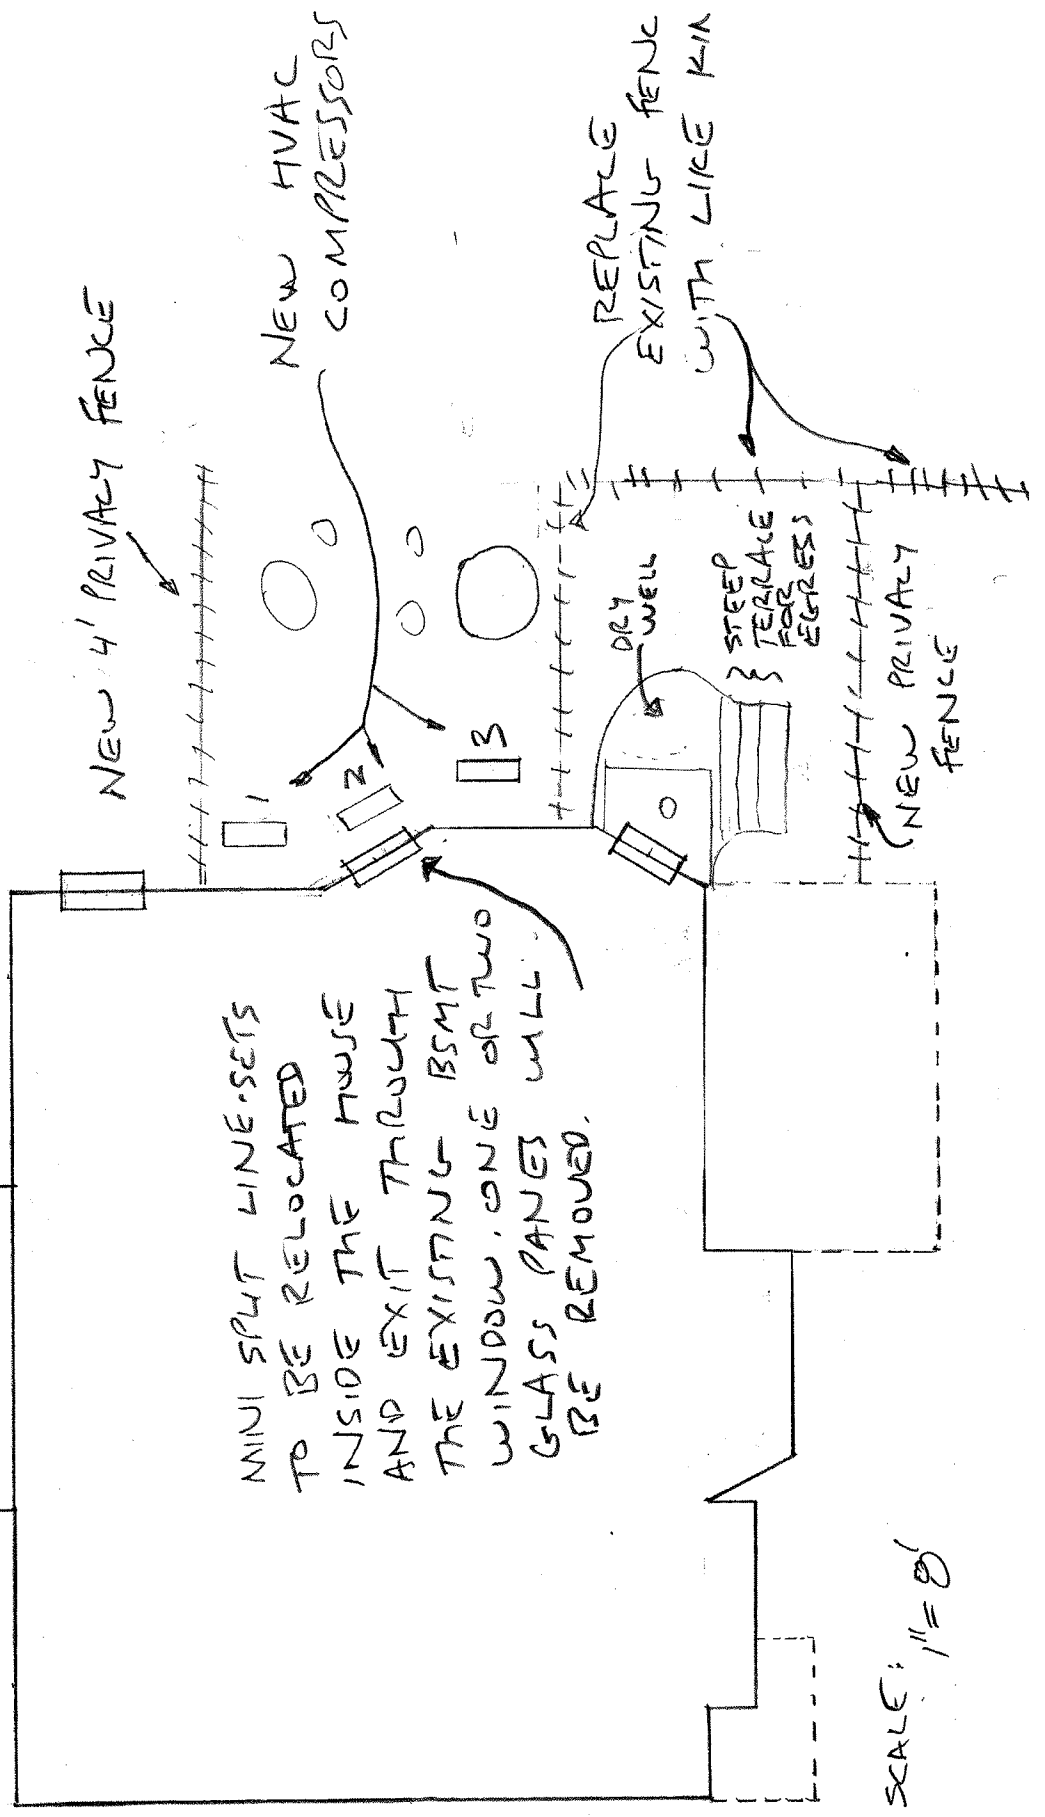 NEW 4' PRIVACY FENCE
NEW HVAC
COMPRESSORS
1
2
3
REPLACE
EXISTING FENC
WITH LIKE KIN
DRY
WELL
STEEP
TERRACE
FOR
EGRESS
NEW PRIVACY
FENCE
MINI SPLIT LINE-SETS
TO BE RELOCATED
INSIDE THE HOUSE
AND EXIT THROUGH
THE EXISTING BSMT
WINDOW. ONE OR TWO
GLASS PANES WILL
BE REMOVED.
SCALE:
1"=8'